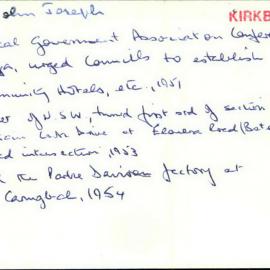 John Joseph
KIRKB
cal Government Association Confere
urged Councils to establish
mmunity Hotels, etc., 1951
er of N.S.W., turned first sod of section
Drive at Elouera Road (Bate
d intersection, 1953
the Padre Davison factory at
Caringbah, 1954